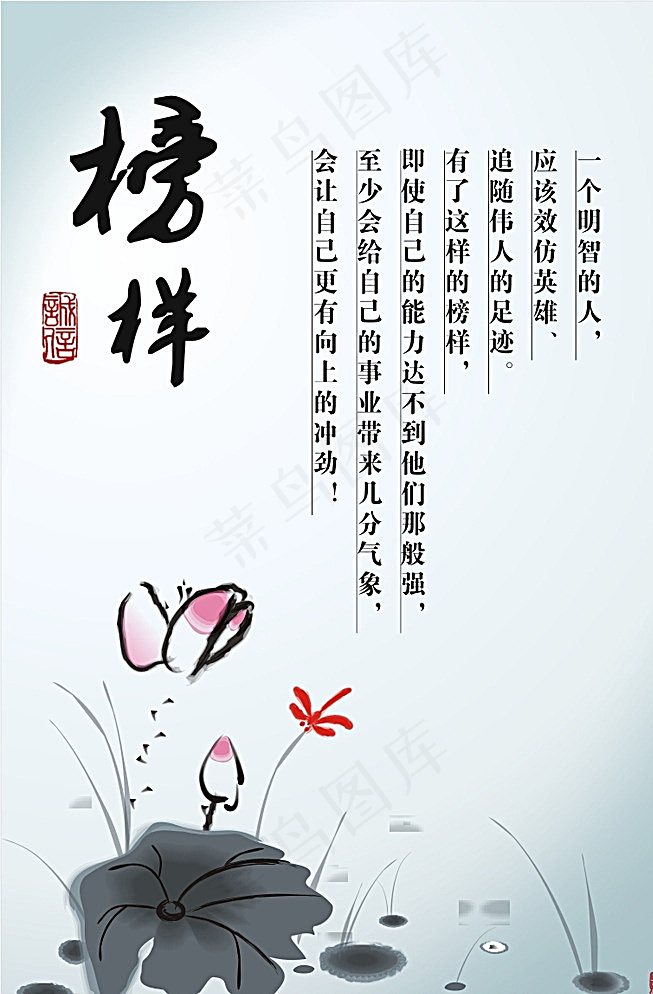 榜样
誠信
一个明智的人，
应该效仿英雄、
追随伟人的足迹。
有了这样的榜样，
即使自己的能力达不到他们那般强，
至少会给自己的事业带来几分气象，
会让自己更有向上的冲劲！
菜鸟图库
菜鸟图库
菜鸟图库